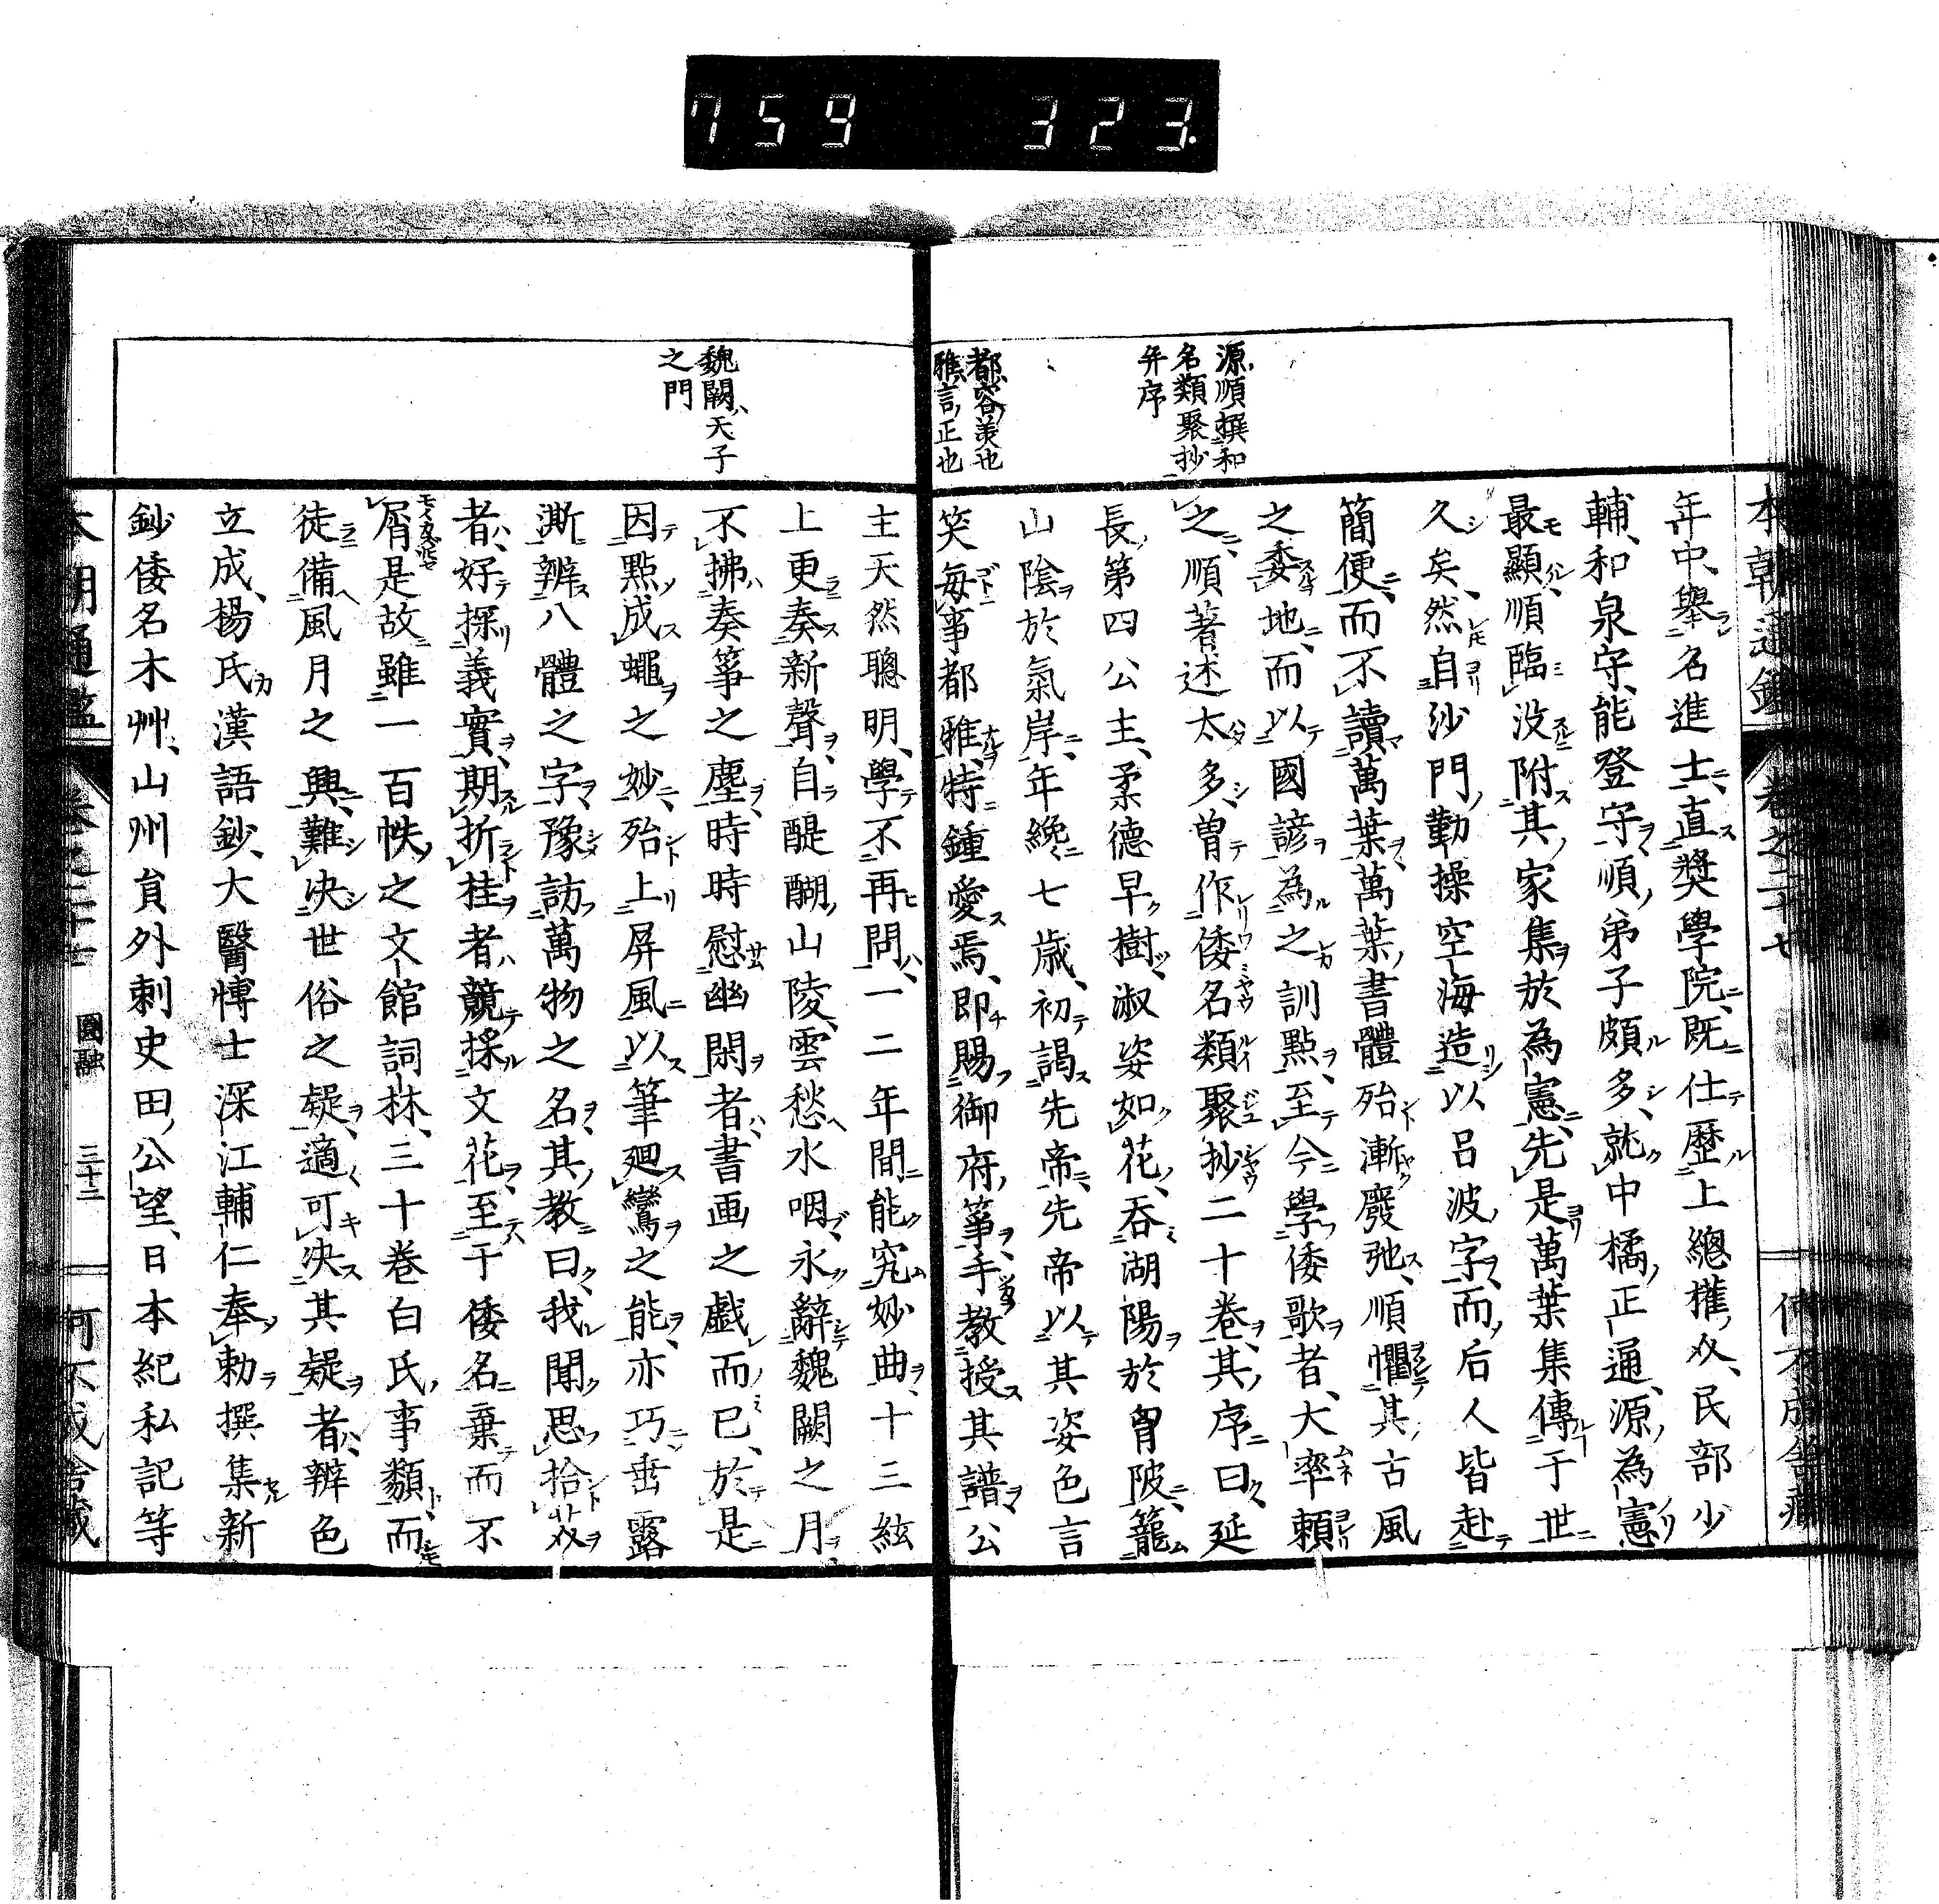 759 323.
源順撰和
名類聚抄
并序
都容美也
雅言正也
本朝通鑑 卷之二十七
年中舉名進士直奨學院既仕歷上總權介民部少
輔和泉守能登守順弟子頗多就中橘正通源為憲
最顯順臨沒附其家集於為憲先是萬葉集傳于世
久矣然自沙門勤操空海造以呂波字而后人皆赴
簡便而不讀萬葉萬葉書體殆漸廢弛順懼其古風
之委地而以國諺為之訓點至今學倭歌者大率賴
之順著述太多曽作倭名類聚抄二十卷其序曰延
長第四公主柔德早樹淑姿如花吞湖陽於胷陂籠
山陰於氣岸年纔七歲初謁先帝先帝以其姿色言
笑每事都雅特鍾愛焉即賜御府箏手教授其譜公
魏闕天子
之門
主天然聰明學不再問一二年間能究妙曲十三絃
上更奏新聲自醍醐山陵雲愁水咽永辭魏闕之月
不拂奏箏之塵時時慰幽閑者書画之戲而已於是
因點成蠅之妙殆上屏風以筆廻鸞之能亦巧垂露
漸辨八體之字豫訪萬物之名其教曰我聞思拾芥
者好探義實期折桂者競採文花至于倭名棄而不
屑是故雖一百帙之文館詞林三十卷白氏事類而
徒備風月之興難决世俗之疑適可决其疑者辨色
立成楊氏漢語鈔大醫愽士深江輔仁奉勅撰集新
鈔倭名木艸山州貟外刺史田公望日本紀私記等
本朝通鑑 圓融 三十二